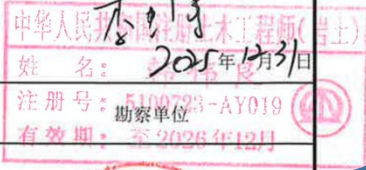 中华人民共和国注册土木工程师(岩土)
2025年12月31日
姓 名：
注册号：5100723-AY019
勘察单位
有效期：至2026年12月